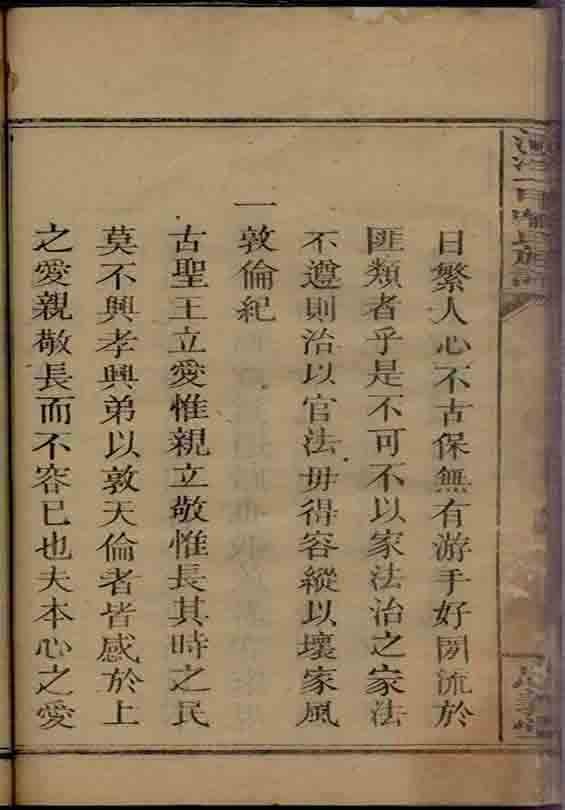 日繁人心不古保無有游手好閒流於
匪類者乎是不可不以家法治之家法
不遵則治以官法毋得容縱以壞家風
一敦倫紀
古聖王立愛惟親立敬惟長其時之民
莫不興孝興弟以敦天倫者皆感於上
之愛親敬長而不容已也夫本心之愛